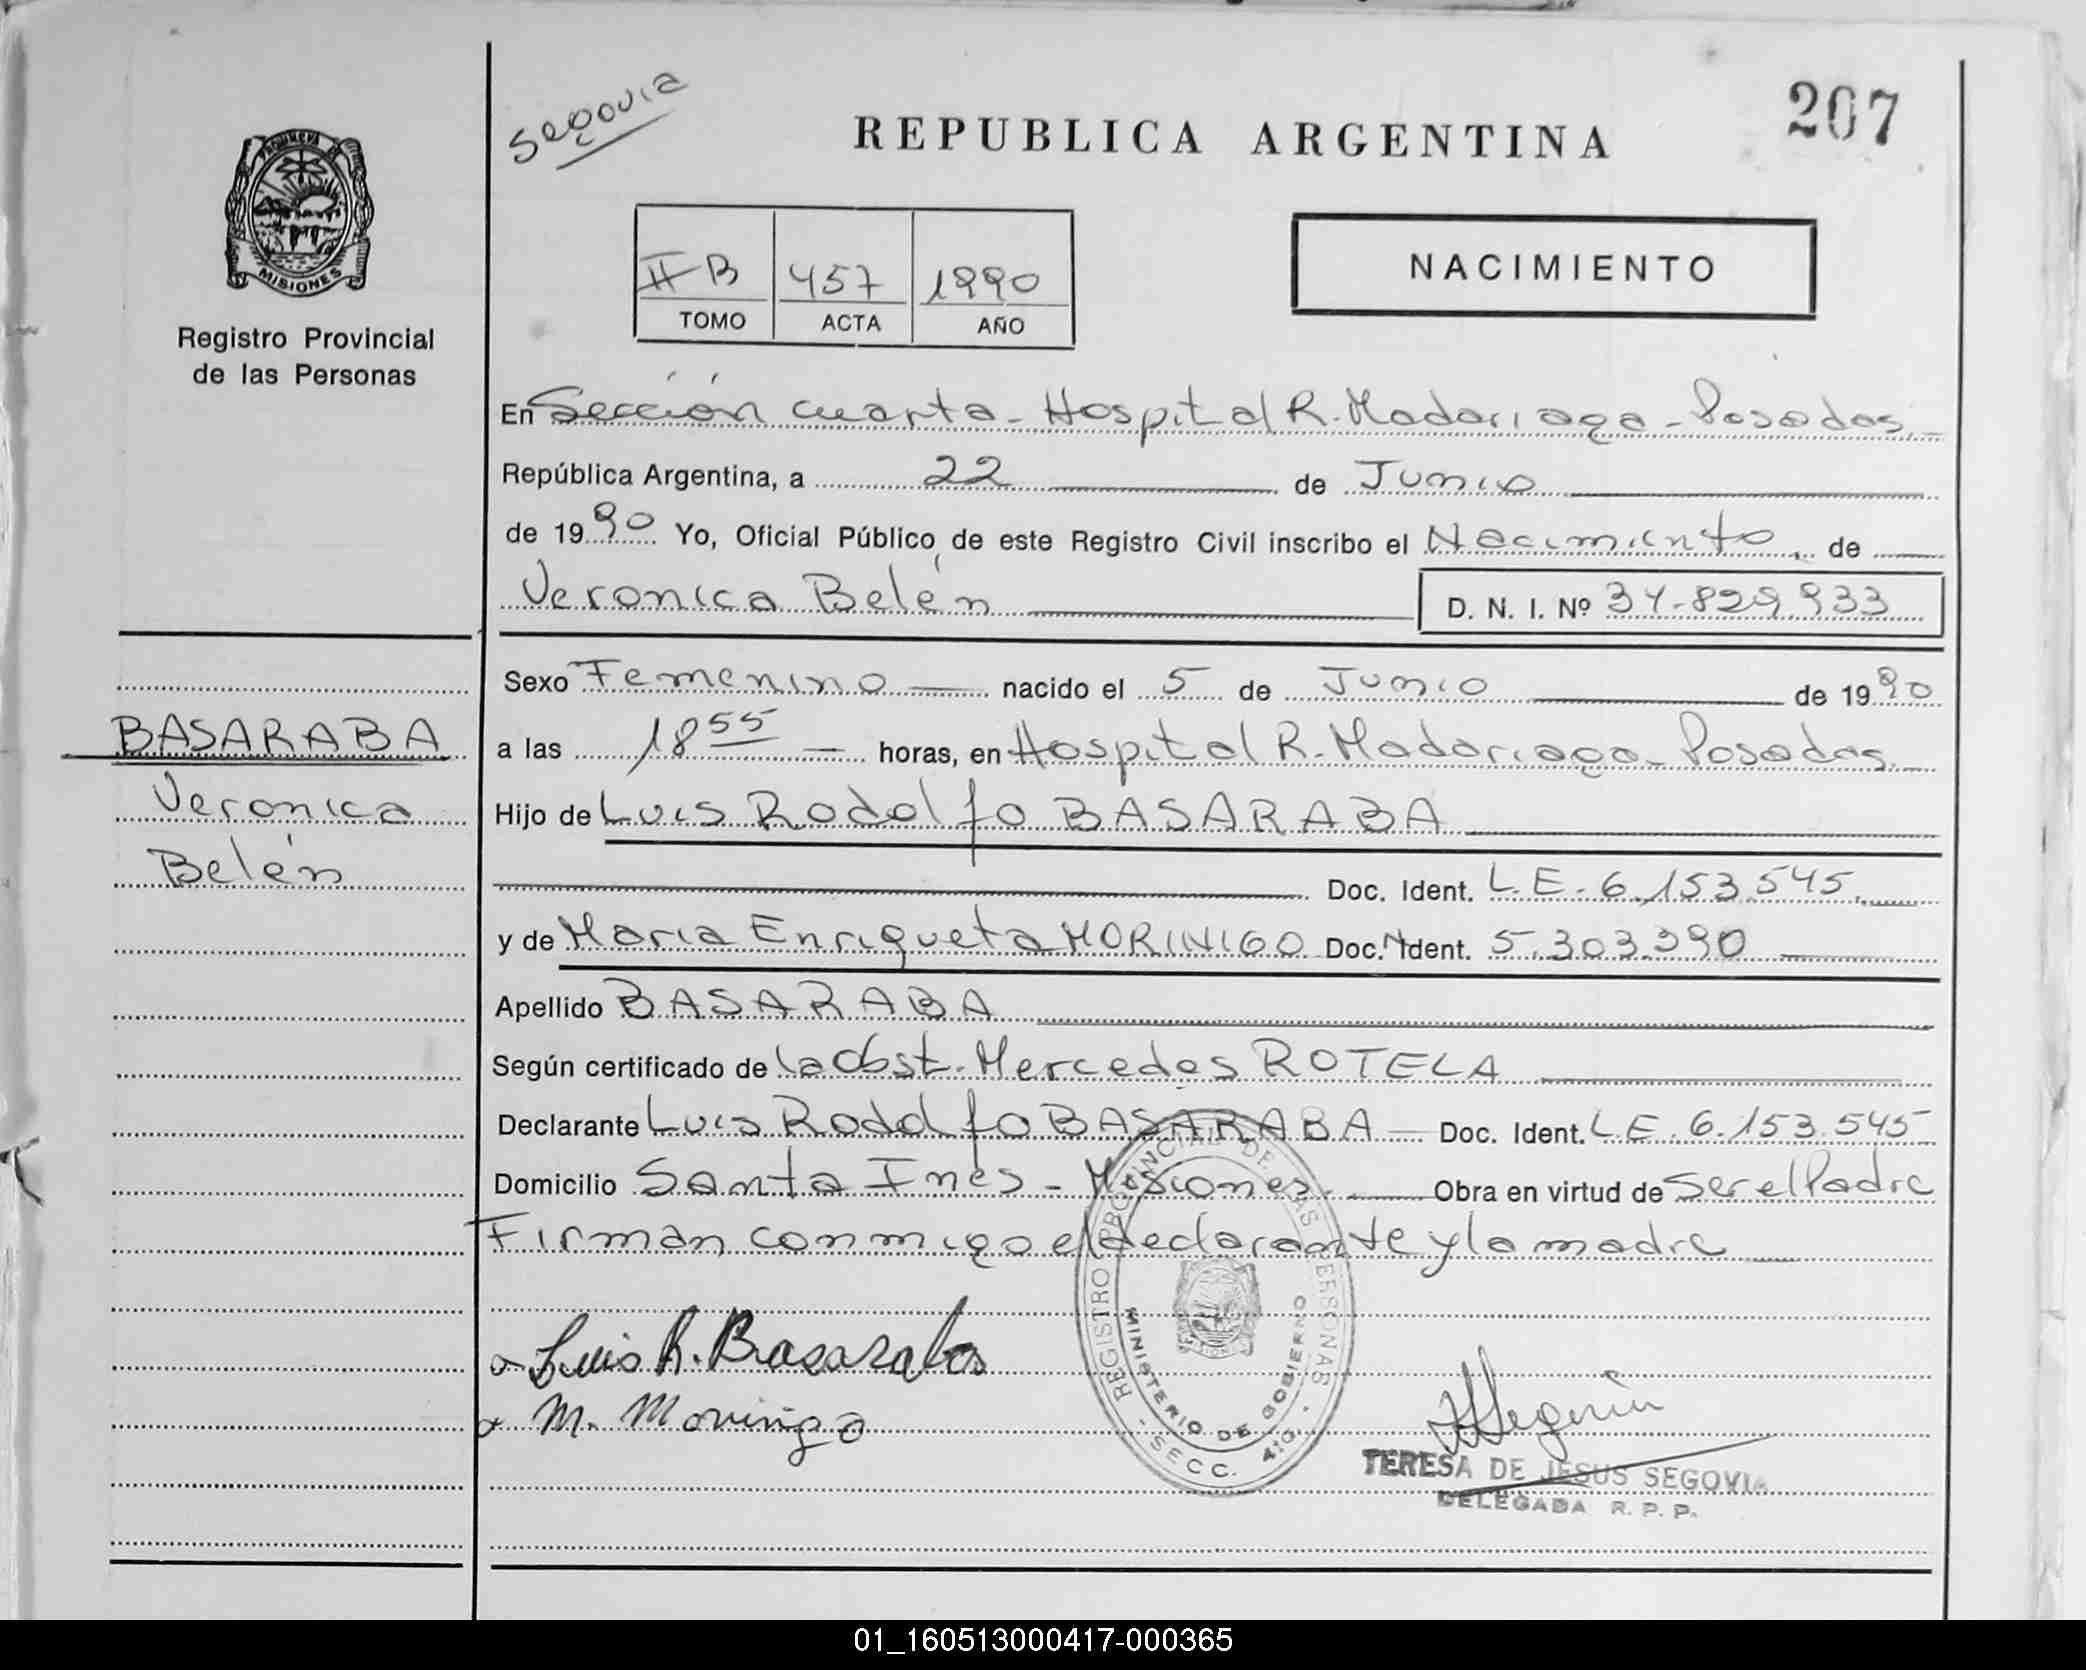 207
Segovia
REPUBLICA ARGENTINA
PROVINCIA DE
MISIONES
Registro Provincial
de las Personas
II B 457 1990
TOMO ACTA AÑO
NACIMIENTO
En Sección cuarta - Hospital R. Madariaga - Posadas
República Argentina, a 22 de Junio
de 1990 Yo, Oficial Público de este Registro Civil inscribo el Nacimiento de
Verónica Belén D. N. I. Nº 34.829.933
Sexo Femenino nacido el 5 de Junio de 1990
a las 18 55 horas, en Hospital R. Madariaga - Posadas
Hijo de Luis Rodolfo BASARABA
Doc. Ident. L.E. 6.153.545
y de Maria Enriqueta MORINIGO Doc. Ident. 5.303.390
Apellido BASARABA
Según certificado de la Obst. Mercedes ROTELA
Declarante Luis Rodolfo BASARABA Doc. Ident. L.E. 6.153.545
Domicilio Santa Inés - Misiones Obra en virtud de ser el Padre
Firman conmigo el declarante y la madre
BASARABA
Verónica
Belén
Luis R. Basaraba
M. Morinigo
REGISTRO PROVINCIAL DE LAS PERSONAS
MINISTERIO DE GOBIERNO
- SECC. 4ta. -
TERESA DE JESUS SEGOVIA
DELEGADA R. P. P.
01_160513000417-000365